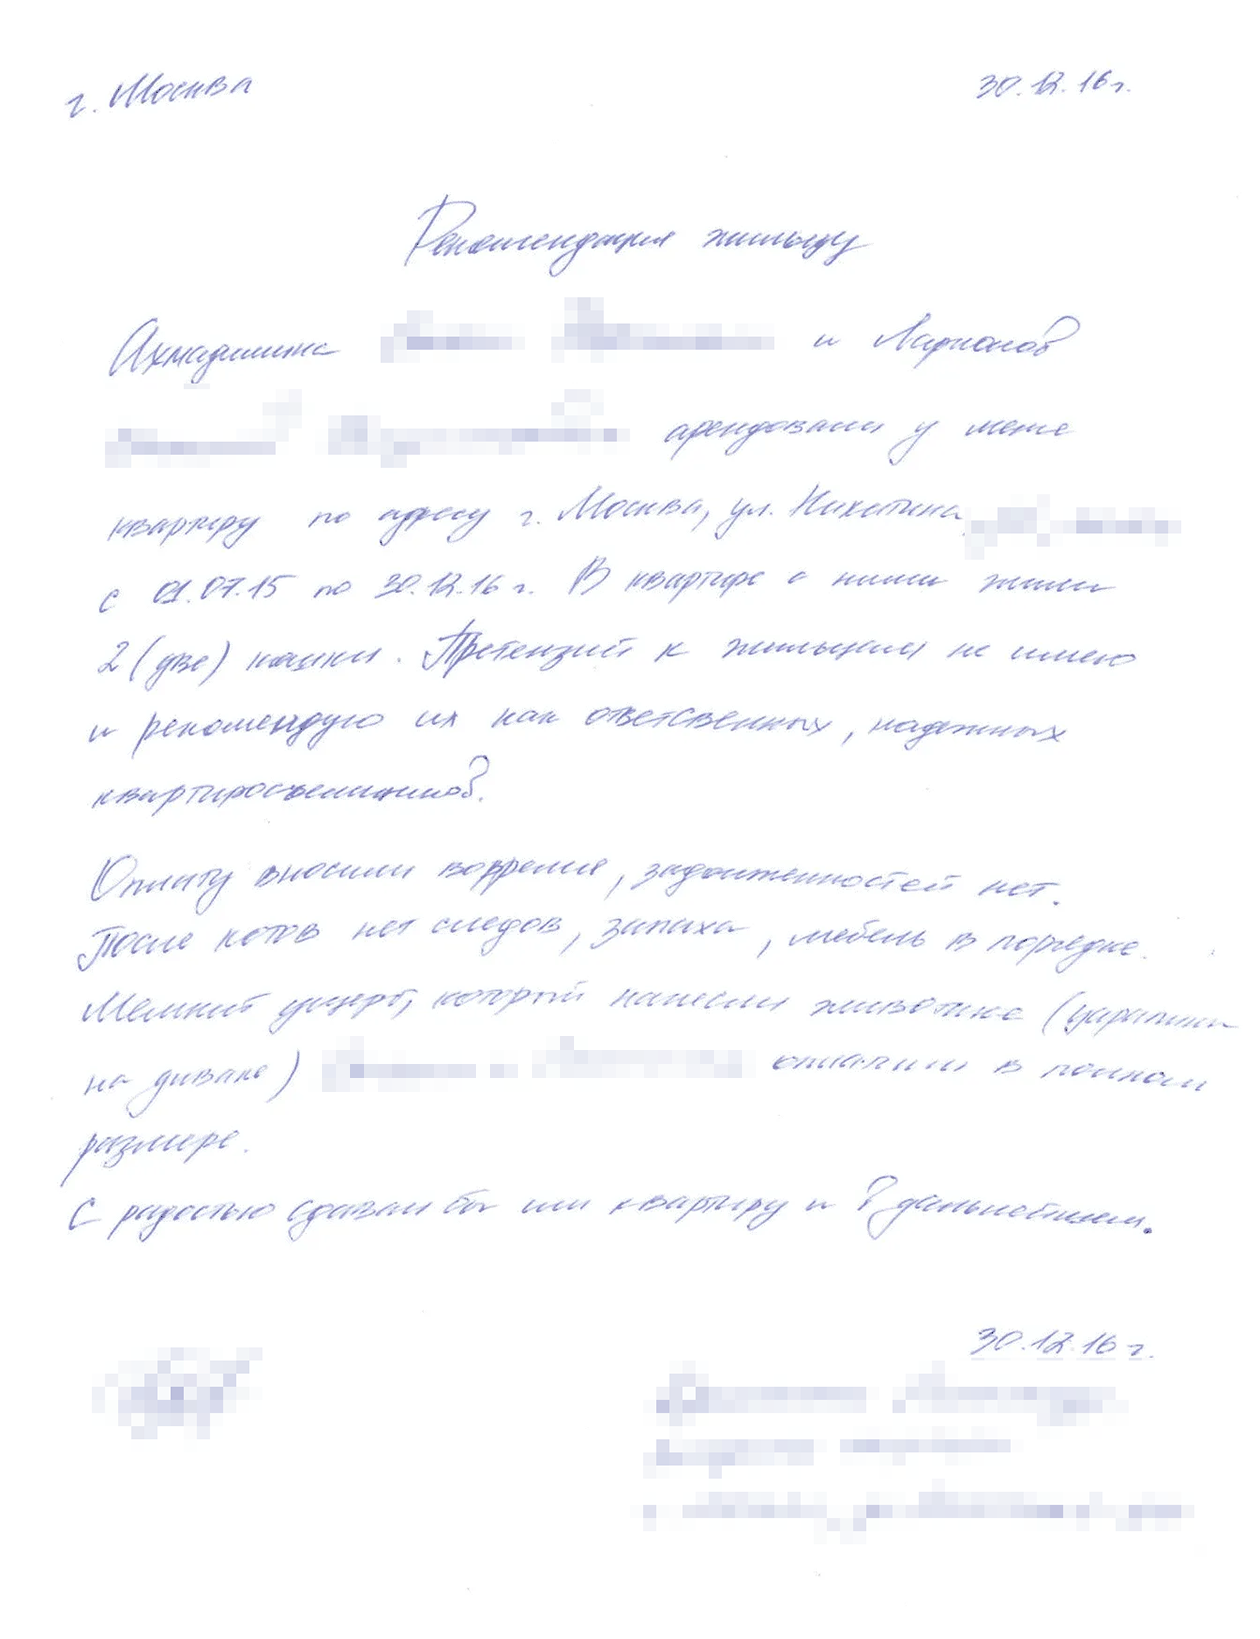 г. Москва 30.12.16г.
Рекомендация жильцу
Ахмадишина и Ларионов
арендовали у меня
квартиру по адресу г. Москва, ул. Никитина,
с 01.07.15 по 30.12.16 г. В квартире с ними жили
2 (две) кошки. Претензий к жильцам не имею
и рекомендую их как ответсвенных, надежных
квартиросъемщиков.
Оплату вносили вовремя, задолженностей нет.
После котов нет следов, запаха, мебель в порядке.
Мелкий ущерб, который нанесли животные (царапины
на диване) оплатили в полном
размере.
С радостью сдавал бы им квартиру и в дальнейшем.
30.12.16 г.